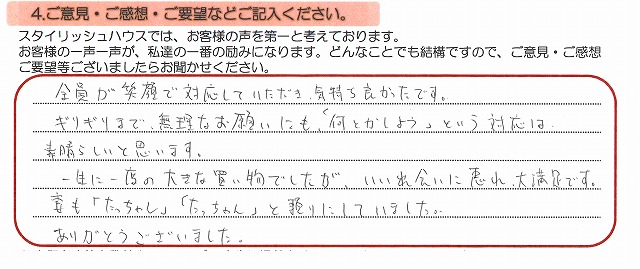 4.ご意見・ご感想・ご要望などご記入ください。
スタイリッシュハウスでは、お客様の声を第一と考えております。
お客様の一声一声が、私達の一番の励みになります。どんなことでも結構ですので、ご意見・ご感想
ご要望等ございましたらお聞かせください。
全員が笑顔で対応していただき、気持ち良かったです。
ギリギリまで、無理なお願いにも、「何とかしよう」という対応は
素晴らしいと思います。
一生に一度の大きな買い物でしたが、いい出会いに恵れ、大満足です。
妻も「たっちゃん」「たっちゃん」と頼りにしていました。
ありがとうございました。